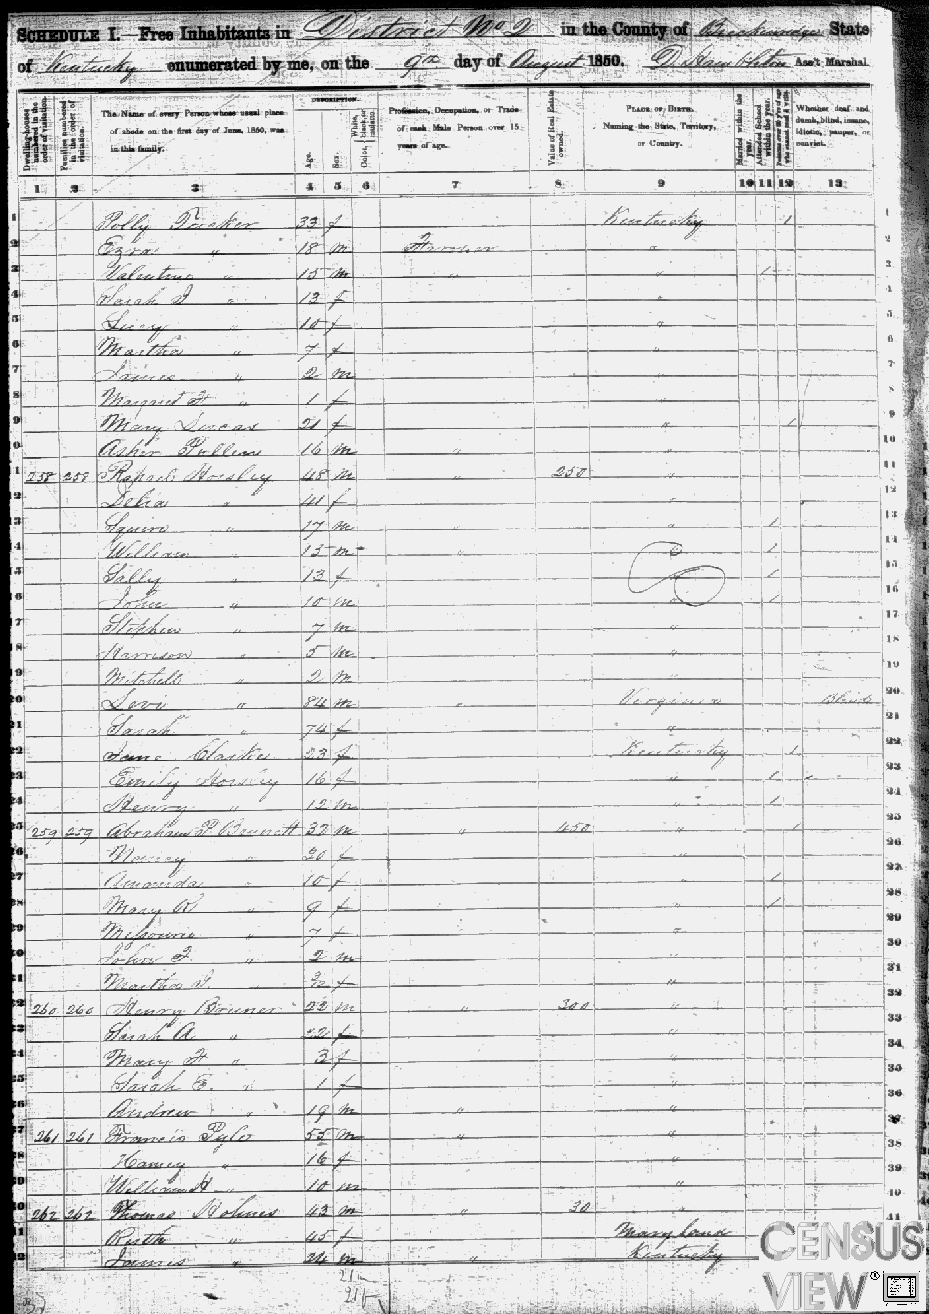 SCHEDULE I. Free Inhabitants in District No 2 in the County of Breckinridge State
of Kentucky enumerated by me, on the 9th day of August 1850. Ass't Marshal
Dwelling-houses numbered in the order of visitation.
Families numbered in the order of visitation.
The Name of every Person whose usual place of abode on the first day of June, 1850, was in this family.
DESCRIPTION.
Age.
Sex.
Color, White, black, or mulatto.
Profession, Occupation, or Trade of each Male Person over 15 years of age.
Value of Real Estate owned.
PLACE OF BIRTH. Naming the State, Territory, or Country.
Married within the year.
Attended School within the year.
Persons over 20 y'rs of age who cannot read & write.
Whether deaf and dumb, blind, insane, idiotic, pauper, or convict.
1 2 3 4 5 6 7 8 9 10 11 12 13
1 Polly Tucker 33 f Kentucky 1 1
2 Ezra " 18 m Farmer " 2
3 Valentine " 15 m " " 1 3
4 Sarah J " 13 f " 4
5 Lucy " 10 f " 5
6 Martha " 7 f " 6
7 James " 2 m " 7
8 Margaret F " 1 f " 8
9 Mary Lucas 21 f " 1 9
10 Asher Pullen 16 m " " 10
11 258 258 Horsley 48 m " 250 " 11
12 Delia " 41 f " 12
13 Squire " 17 m " " 1 13
14 William " 15 m " " 1 14
15 Sally " 13 f " 1 15
16 John " 10 m " 1 16
17 Stephen " 7 m " 17
18 Harrison " 5 m " 18
19 Mitchell " 2 m " 19
20 Levi " 84 m " Virginia Blind 20
21 Sarah " 74 f " 21
22 Jane 23 f Kentucky 1 22
23 Emily Horsley 16 f " 1 23
24 Henry " 12 m " 1 24
25 259 259 Abraham P Bennett 32 m " 450 " 1 25
26 Nancy " 30 f " 26
27 Amanda " 10 f " 1 27
28 Mary R. " 9 f " 1 28
29 " 7 f " 29
30 John F. " 2 m " 30
31 Martha " f " 31
32 260 260 Henry Bruner 22 m " 300 " 32
33 Sarah A " 22 f " 33
34 Mary F " 3 f " 34
35 Sarah E. " 1 f " 35
36 Andrew " 19 m " " 36
37 261 261 Francis Pyle 55 m " " 37
38 " 16 f " 38
39 William H " 10 m " 39
40 262 262 Thomas Holmes 43 m 30 " 40
41 Ruth " 45 f Maryland 41
42 James " 24 m " Kentucky
CENSUS
VIEW®